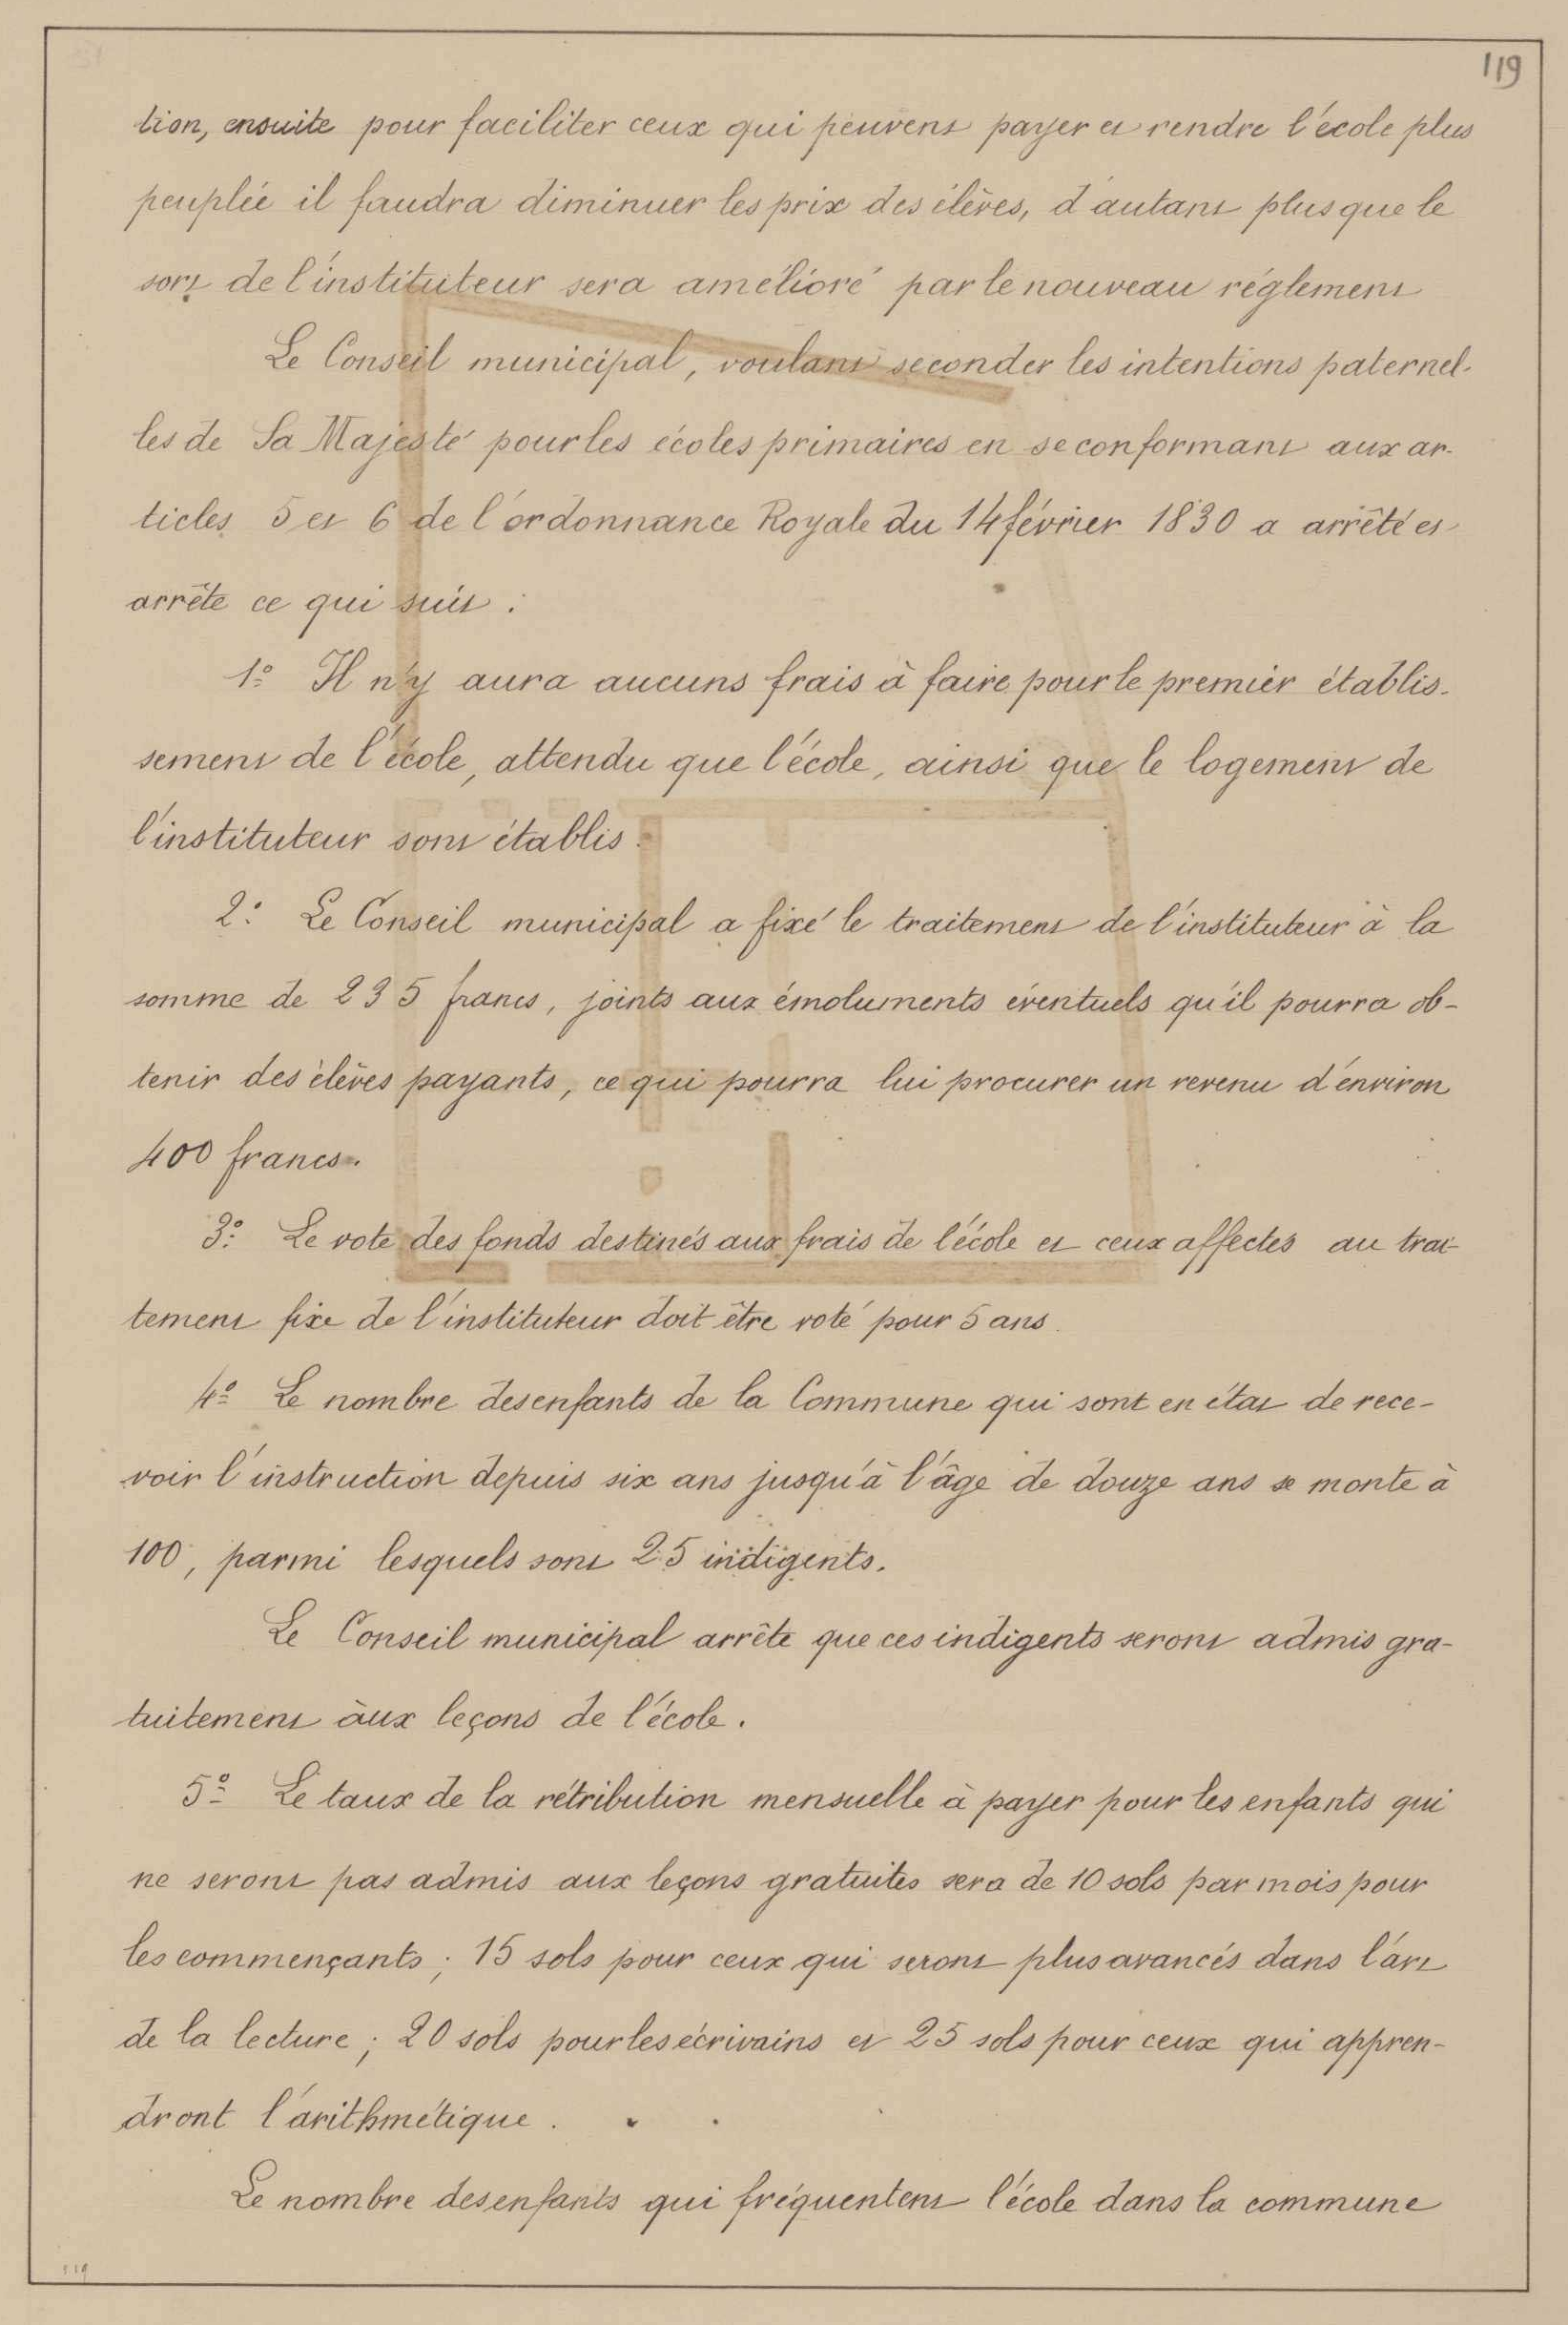 119
tion, ensuite pour faciliter ceux qui peuvent payer et rendre l'école plus
peuplée il faudra diminuer les prix des élèves, d'autant plus que le
sort de l'instituteur sera amélioré par le nouveau réglement
Le Conseil municipal, voulant seconder les intentions paternel-
les de Sa Majesté pour les écoles primaires en se conformant aux ar-
ticles 5 et 6 de l'ordonnance Royale du 14 février 1830 a arrêté et
arrête ce qui suit :
1º Il n'y aura aucuns frais à faire pour le premier établis-
sement de l'école, attendu que l'école, ainsi que le logement de
l'instituteur sont établis.
2º Le Conseil municipal a fixé le traitement de l'instituteur à la
somme de 235 francs, joints aux émoluments éventuels qu'il pourra ob-
tenir des élèves payants, ce qui pourra lui procurer un revenu d'environ
400 francs.
3º Le vote des fonds destinés aux frais de l'école et ceux affectés au trai-
tement fixe de l'instituteur doit être voté pour 5 ans.
4º Le nombre des enfants de la Commune qui sont en état de rece-
voir l'instruction depuis six ans jusqu'à l'âge de douze ans se monte à
100, parmi lesquels sont 25 indigents.
Le Conseil municipal arrête que ces indigents seront admis gra-
tuitement àux leçons de l'école.
5º Le taux de la rétribution mensuelle à payer pour les enfants qui
ne seront pas admis aux leçons gratuites sera de 10 sols par mois pour
les commençants ; 15 sols pour ceux qui seront plus avancés dans l'art
de la lecture ; 20 sols pour les écrivains et 25 sols pour ceux qui appren-
dront l'arithmétique.
Le nombre des enfants qui fréquentent l'école dans la commune
119